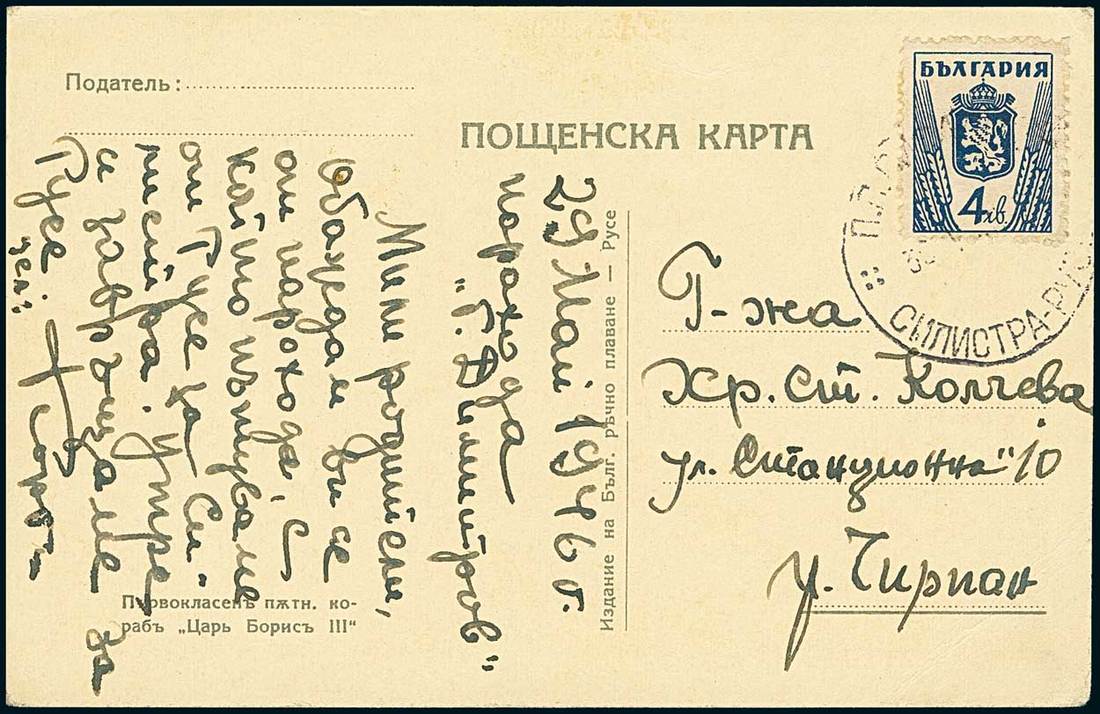 Податель:
ПОЩЕНСКА КАРТА
БЪЛГАРИЯ
4 лв.
СИЛИСТРА-РУСЕ
29 Май 1946 г.
парахода
"Г. Димитров"
Мили родители,
Обаждам ви се
от парахода, с
който пътуваме
от Русе за Си-
листра. Утре
се завръщаме за
Русе.
Издание на Бълг. рѣчно плаване — Русе
Първокласенъ пѫтн. ко-
рабъ „Царь Борисъ III"
Г-жа
Хр. Ст. Колчева
ул. "Станционна" 10
гр. Чирпан